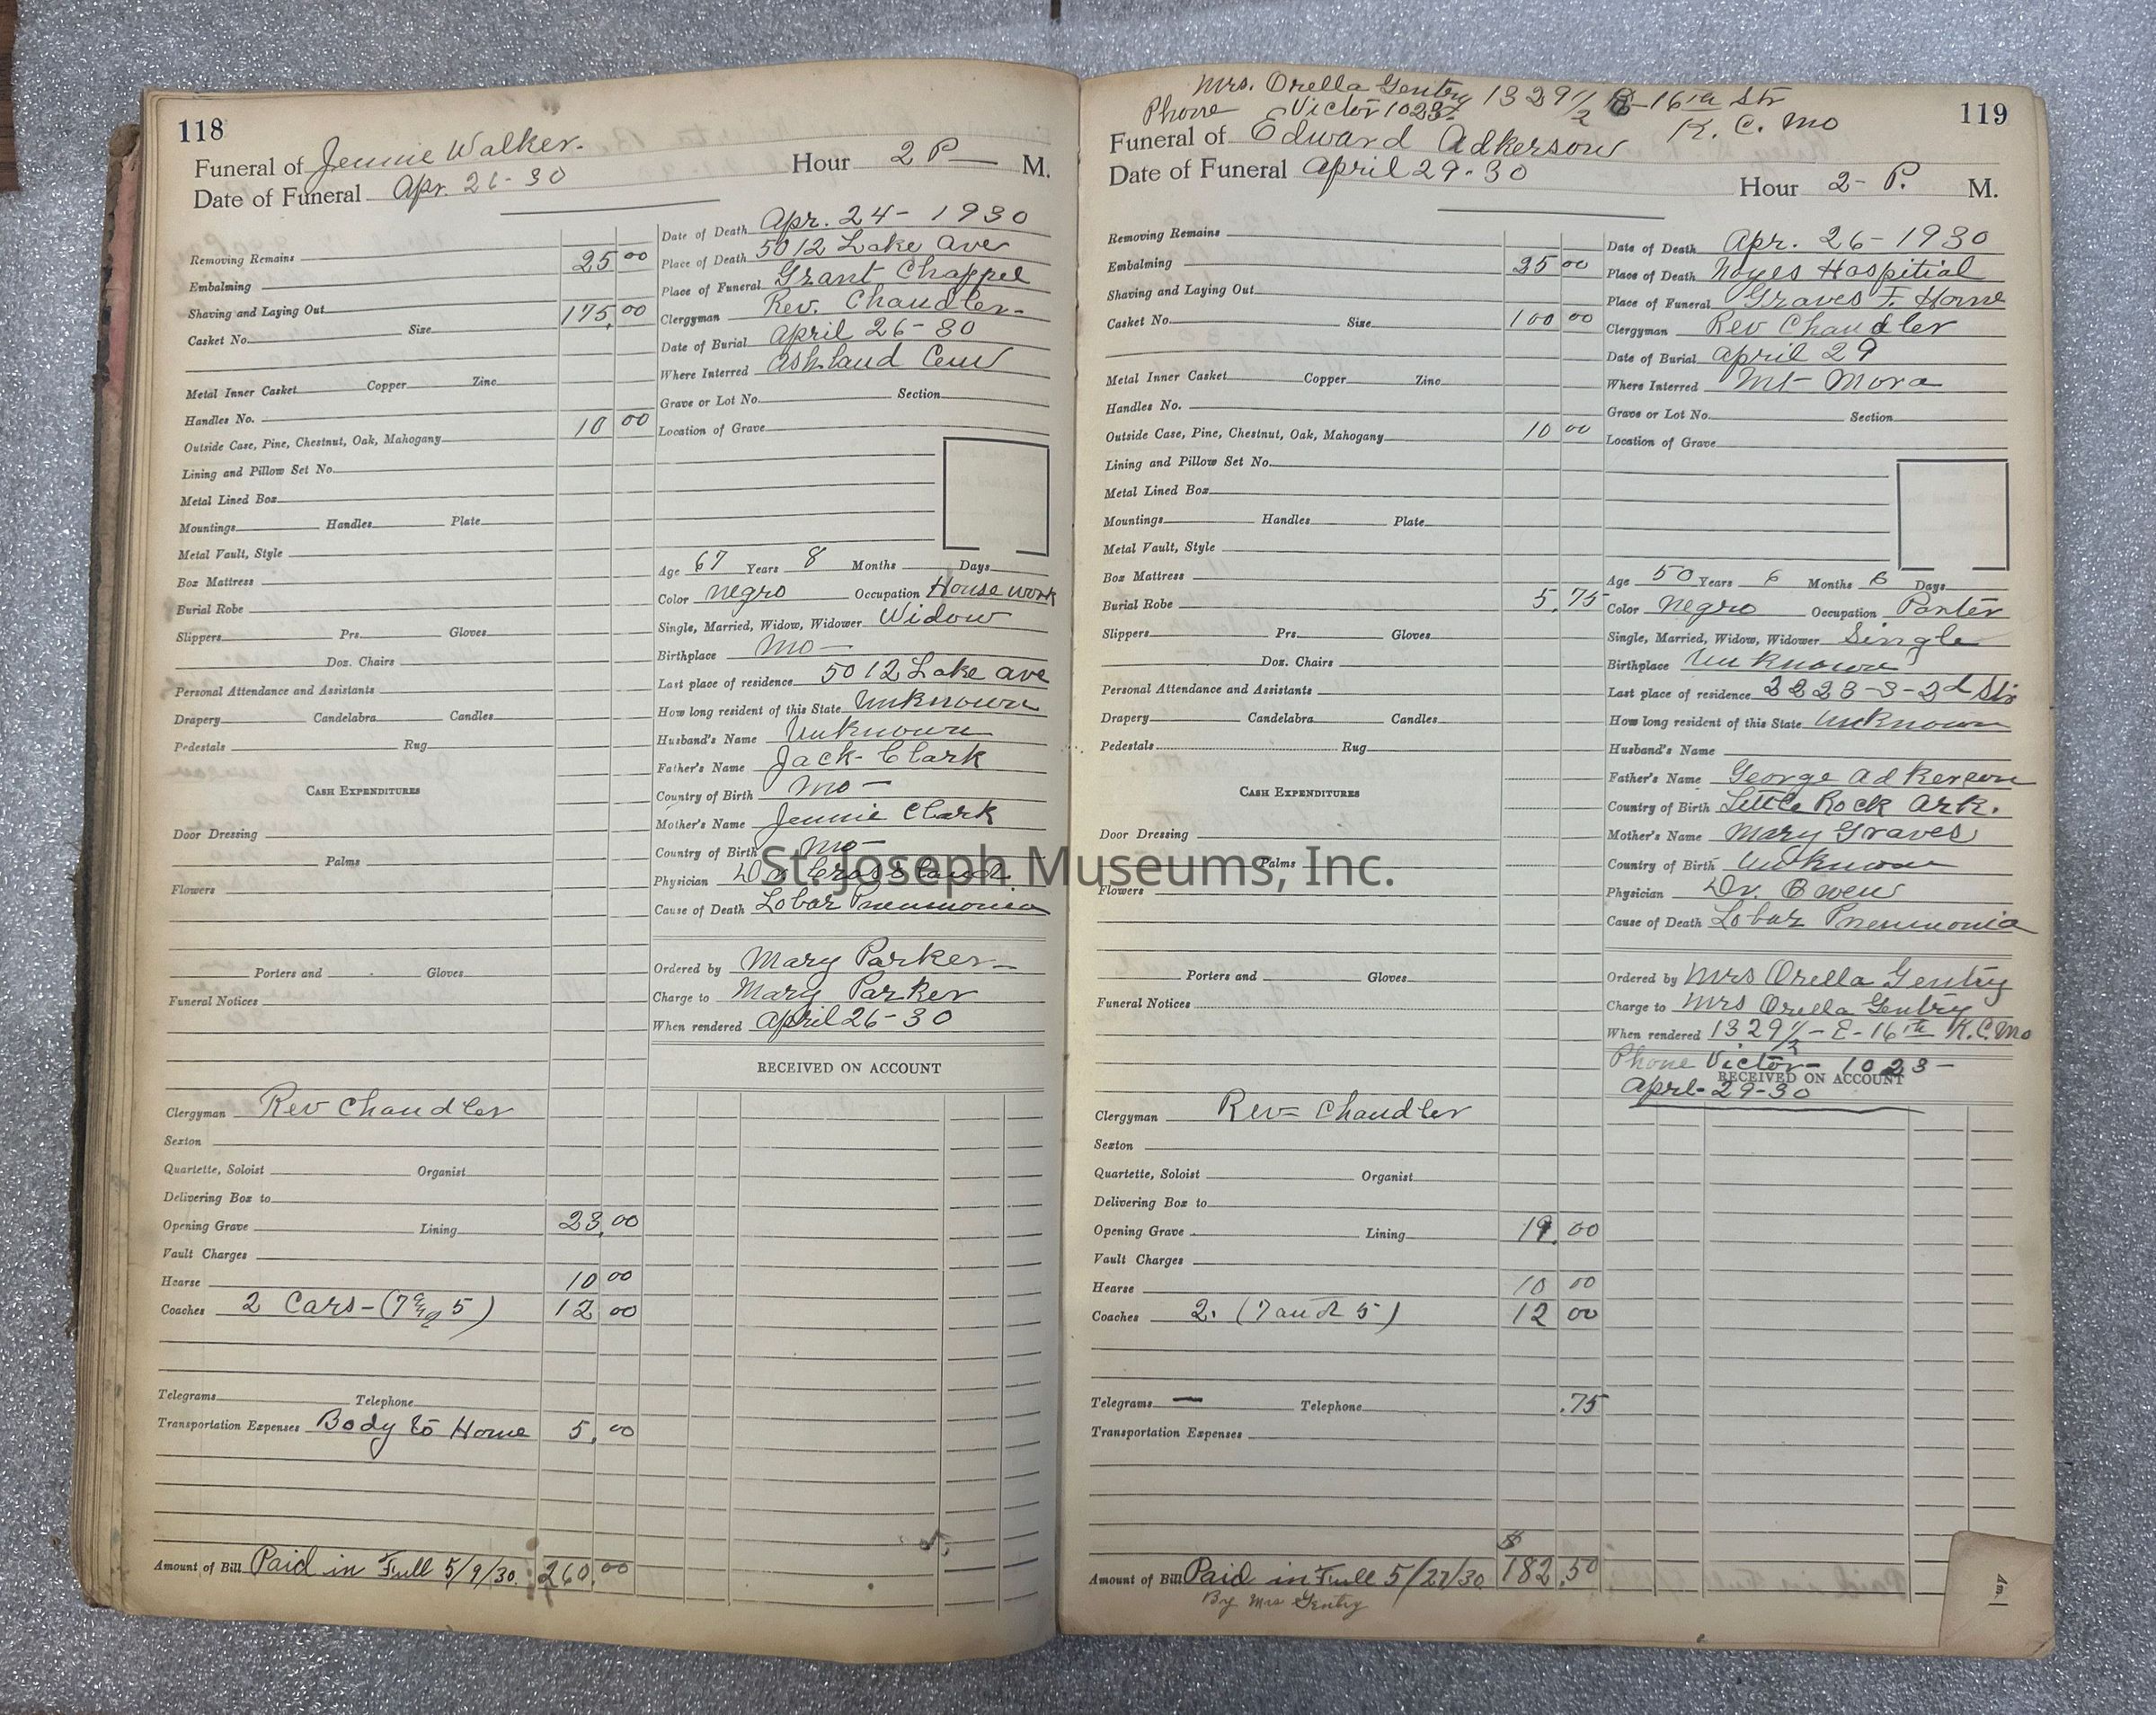 118
Funeral of Jennie Walker. Hour 2 P M.
Date of Funeral Apr. 26-30
Removing Remains 25 00
Embalming
Shaving and Laying Out 175.00
Casket No. Size
Metal Inner Casket Copper Zinc
Handles No.
Outside Case, Pine, Chestnut, Oak, Mahogany 10 00
Lining and Pillow Set No.
Metal Lined Box
Mountings Handles Plate
Metal Vault, Style
Box Mattress
Burial Robe
Slippers Prs. Gloves
Doz. Chairs
Personal Attendance and Assistants
Drapery Candelabra Candles
Pedestals Rug
CASH EXPENDITURES
Door Dressing
Palms
Flowers
Porters and Gloves
Funeral Notices
Clergyman Rev Chandler
Sexton
Quartette, Soloist Organist
Delivering Box to
Opening Grave Lining 23.00
Vault Charges
Hearse 10 00
Coaches 2 Cars-(7 and 5) 12 00
Telegrams Telephone
Transportation Expenses Body to Home 5.00
Amount of Bill Paid in Full 5/9/30. 260.00
Date of Death Apr. 24-1930
Place of Death 5012 Lake Ave
Place of Funeral Grant Chappel
Clergyman Rev. Chandler-
Date of Burial April 26-30
Where Interred Ashland Cem
Grave or Lot No. Section
Location of Grave
Age 67 Years 8 Months Days
Color negro Occupation House work
Single, Married, Widow, Widower Widow
Birthplace Mo-
Last place of residence 5012 Lake ave
How long resident of this State Unknown
Husband's Name Unknown
Father's Name Jack-Clark
Country of Birth Mo-
Mother's Name Jennie Clark
Country of Birth Mo-
Physician Dr
Cause of Death Lobar Pneumonia
Ordered by Mary Parker-
Charge to Mary Parker
When rendered April 26-30
RECEIVED ON ACCOUNT
Mrs. Orella Gentry 1329 1/2 E-16th Str
Phone Victor 1023. K.C. Mo
119
Funeral of Edward Adkerson
Date of Funeral April 29-30 Hour 2-P. M.
Removing Remains
Embalming 35 00
Shaving and Laying Out
Casket No. Size 100 00
Metal Inner Casket Copper Zinc
Handles No.
Outside Case, Pine, Chestnut, Oak, Mahogany 10 00
Lining and Pillow Set No.
Metal Lined Box
Mountings Handles Plate
Metal Vault, Style
Box Mattress
Burial Robe 5.75
Slippers Prs. Gloves
Doz. Chairs
Personal Attendance and Assistants
Drapery Candelabra Candles
Pedestals Rug
CASH EXPENDITURES
Door Dressing
Palms
Flowers
Porters and Gloves
Funeral Notices
Clergyman Rev= Chandler
Sexton
Quartette, Soloist Organist
Delivering Box to
Opening Grave Lining 19.00
Vault Charges
Hearse 10 00
Coaches 2. (7 and 5) 12 00
Telegrams - Telephone .75
Transportation Expenses
$
Amount of Bill Paid in Full 5/27/30 182.50
By Mrs Gentry
Date of Death Apr. 26-1930
Place of Death Noyes Hospitial
Place of Funeral Graves F. Home
Clergyman Rev Chandler
Date of Burial April 29
Where Interred Mt- Mora
Grave or Lot No. Section
Location of Grave
Age 50 Years 6 Months 6 Days
Color negro Occupation Porter
Single, Married, Widow, Widower Single
Birthplace Unknown
Last place of residence 2223-S-2d Str
How long resident of this State Unknown
Husband's Name
Father's Name George Adkerson
Country of Birth Little Rock Ark.
Mother's Name Mary Graves
Country of Birth Unknown
Physician Dr. Owen
Cause of Death Lobar Pneumonia
Ordered by Mrs Orella Gentry
Charge to Mrs Orella Gentry
When rendered 1329 1/2-E-16th K.C. Mo
Phone Victor-1023-
RECEIVED ON ACCOUNT
April-29-30
St. Joseph Museums, Inc.